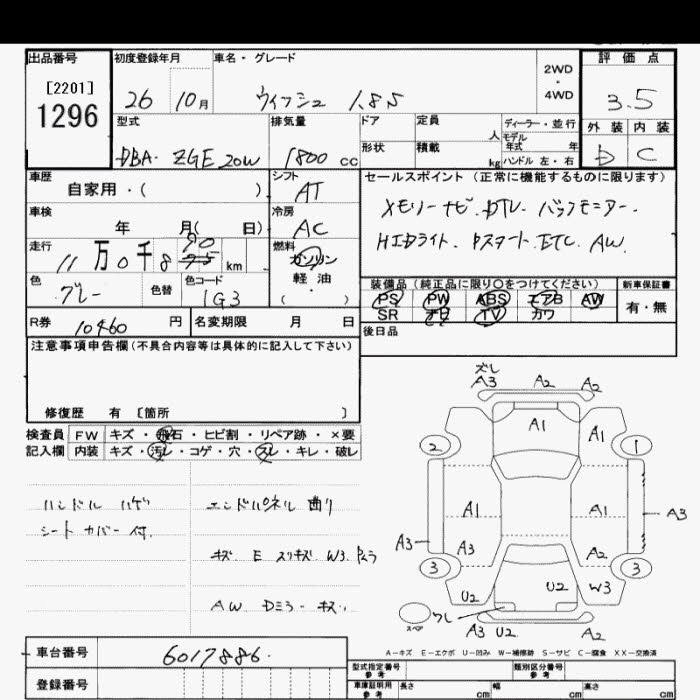 出品番号 初度登録年月 車名・グレード 2WD・4WD 評価点
[2201]
1296
26 10月 ウィッシュ 1.8S 3.5
型式 排気量 ドア 定員 人 ディーラー・並行 外装 内装
モデル年式 年
DBA- ZGE20W 1800cc 形状 積載 kg ハンドル 左・右 D C
車歴 シフト セールスポイント(正常に機能するものに限ります)
自家用・( ) AT メモリーナビ. DTV. バックモニター.
車検 冷房
年 月( 日) AC HIDライト. Pスタート. ETC. AW.
走行 燃料
11万0千890km ガソリン
軽油
・( )
色 色替 色コード
グレー 1G3
装備品(純正品に限り〇をつけてください) 新車保証書
PS PW ABS エアB AW 有・無
SR ナビ TV カワ
R券 10460円 名変期限 月 日 後日品
注意事項申告欄(不具合内容等は具体的に記入して下さい)
修復歴 有 [箇所 ]
検査員 FW キズ・飛石・ヒビ割・リペア跡・×要
記入欄 内装 キズ・汚レ・コゲ・穴・スレ・キレ・破レ
ハンドル ハゲ エンドパネル 曲り
シートカバー付.
キズ E スリキズ W3. Pムラ
AW Dミラー キズ
ズレ
A3 A2 A2
A1 A1
2 1
A1 A1
A3 A3
A3 A2
3 3
U2 U2 W3
スペア ワレ
A3 U2 A2
A-キズ E-エクボ U-凹み W-補修跡 S-サビ C-腐食 XX-交換済
車台番号 6017886.
型式指定番号 参考 類別区分番号 参考
登録番号
車庫証明用 参考 長さ cm 幅 cm 高さ cm